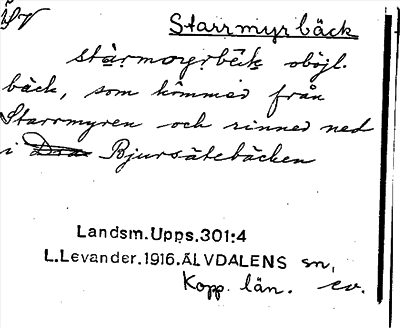 Starrmyrbäck
stàrmoyrbek oböjl.
bäck, som kommer från
Starrmyren och rinner ned
i Bjursätebäcken
Landsm.Upps.301:4
L.Levander.1916.ÄLVDALENS sn,
Kopp. län.